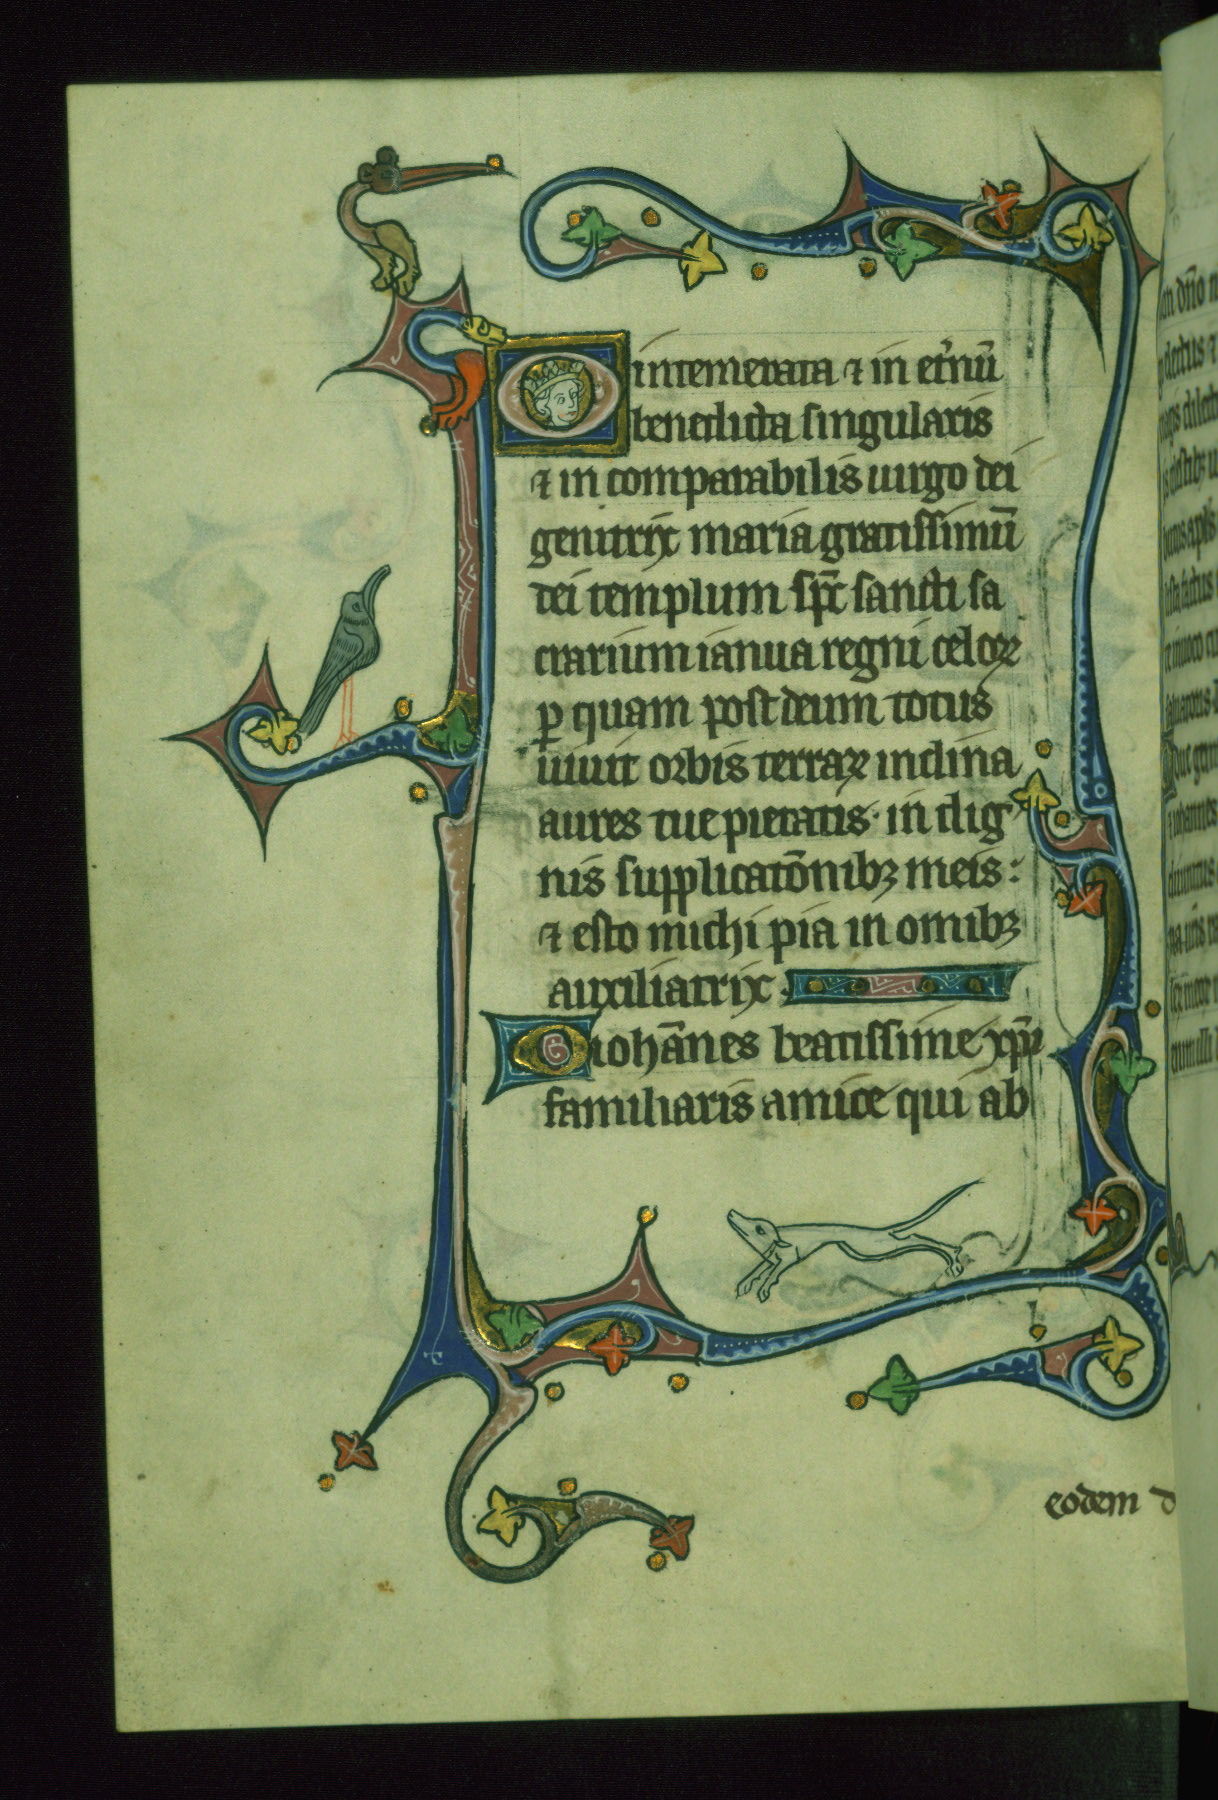 O intemerata ⁊ in et̉nū
benedicta singularis
⁊ in comparabilis uirgo dei
genitrix maria gratissimū
dei templum sp̄c sancti sa
crarium ianua regni celoꝝ
ꝑ quam post deum totus
uiuit orbis terraꝝ inclina
aures tue pietatis · in dig
nis supplicatōnibꝫ meis :
⁊ esto michi pia in omibꝫ
auxiliatrix .
O iohānes beatissime xp̄i
familiaris amice qui ab
eodem d